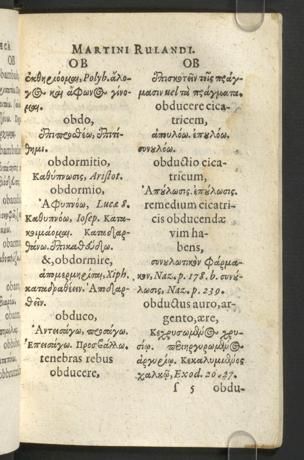 MARTINI RULANDI.
OB
ἐκθηριόομαι, Polyb. ἄλογος καὶ ἄφωνος γίνομαι.
obdo,
ἐπιπροθέω, ἐπιτίθημι.
obdormitio,
Καθύπνωσις, Aristot.
obdormio,
Ἀφυπνόω, Luc. 8.
Καθυπνόω, Iosep. Κατακοιμάομαι. Καταδαρθάνω. Ἐπικαθεύδω.
&, obdormire,
ἀπομερμηρίσαι, Xiph.
καταδραθέειν. Ἀποδαρθεῖν.
obduco,
Ἀντεισάγω, προσάγω.
Ἐπεισάγω. Προσβάλλω.
tenebras rebus
obducere,
OB
ἐπισκοτεῖν τοῖς πράγμασιν vel τὰ πράγματα.
obducere cicatricem,
ἀπουλόω. ἐπουλόω.
συνουλόω.
obductio cicatricum,
Ἀπούλωσις. ἐπούλωσις.
remedium cicatricis obducendæ
vim habens,
συνουλωτικὸν φάρμακον, Naz. p. 178. b. συνούλωσις, Naz. p. 239.
obductus auro, argento, ære,
Κεχρυσωμένος χρυσίῳ. περιηργυρωμένος
ἀργυρίῳ. Κεκαλυμμένος
χαλκῷ, Exod. 26. 27.
ſ 5 obdu-